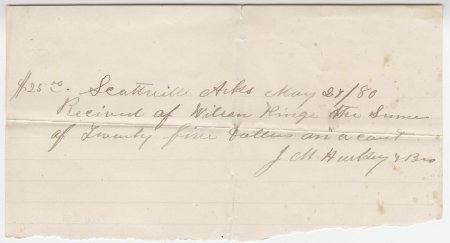 $25 00. Scottville Arks May 28/80
Recived of Wilson Kinge the Sume
of Twenty five Dollers on a cout
J M Hurley & Bro